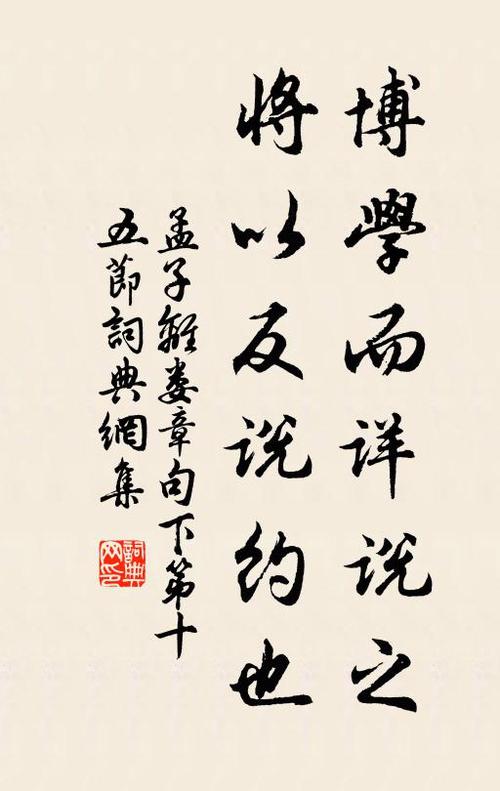 博學而详说之
将以反说约也
孟子離娄章句下第十
五節詞典網集
詞典
网印